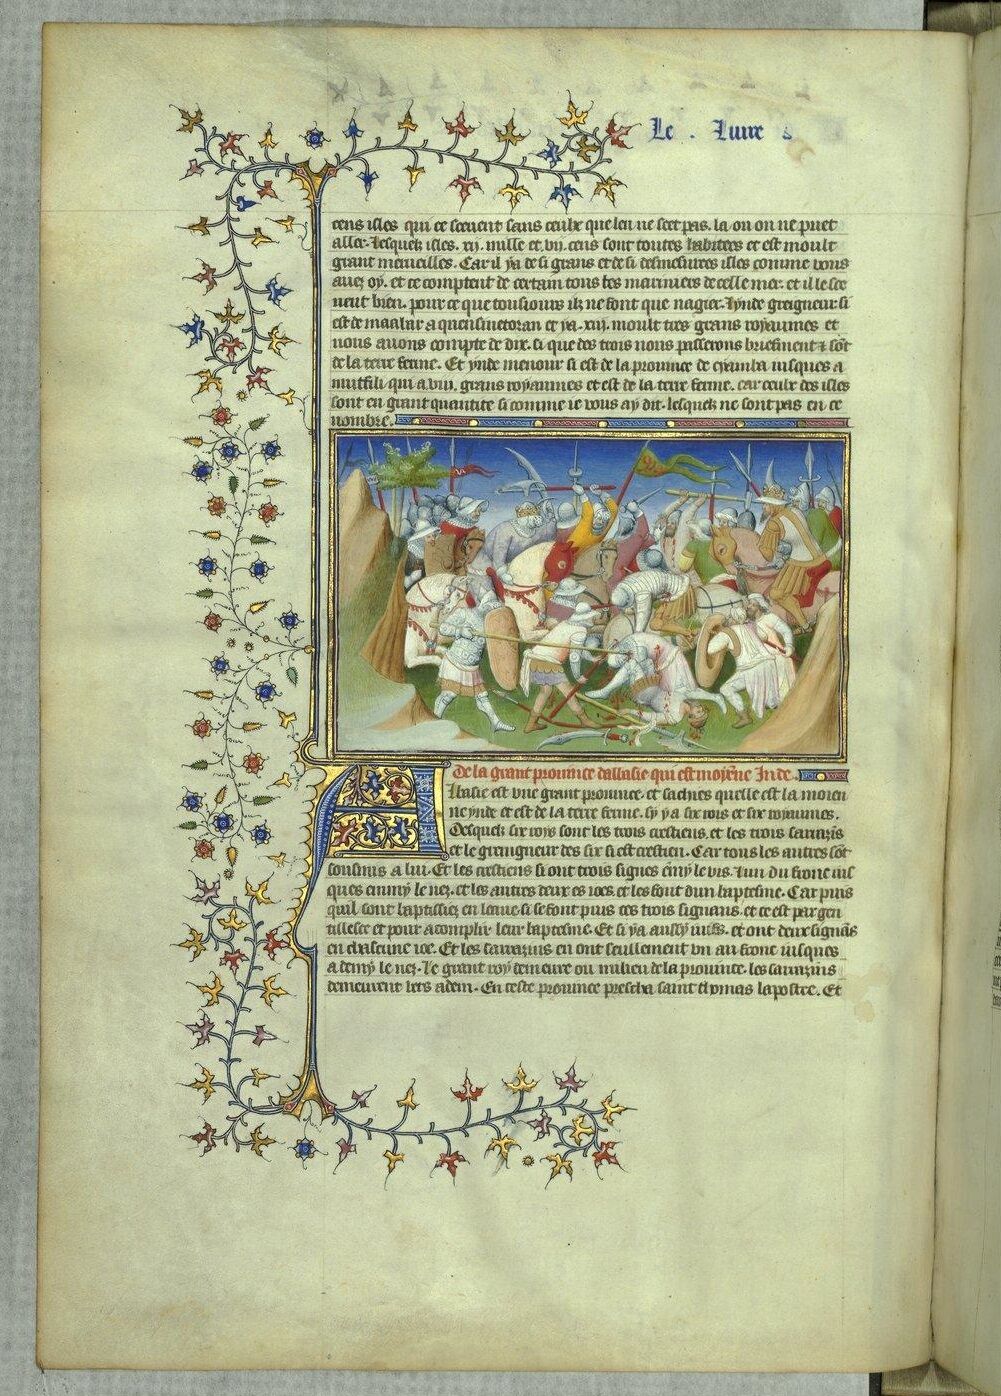 Le . liure
cens isles qui ce scevent sans ceulx que len ne scet pas. la on on ne puet
aller. lesquelz isles. xij. mille et. vij. cens sont toutes habitees et est moult
grant merueilles. Car il ya de si grans et de si desmesurees isles comme vous
auez oy. et ce comptent de certain tous les mariniers de celle mer. et il le sce
uent bien. pour ce que tousiours ilz ne font que nagier. Iynde greigneur si
est de maabar a quensinetoran et ya. xiij. moult tres grans royaumes et
nous auons compte de dix. si que des trois nous passerons briefment & sont
de la terre ferme. Et ynde menour si est de la prouince de cyamba iusques a
mutfili qui a viij. grans royaumes et est de la terre ferme. car ceulx des isles
sont en grant quantite si comme ie vous ay dit. lesquelz ne sont pas en ce
nombre.
De la grant prouince dallasie qui est moyenne Inde.
Albasie est vne grant prouince. et sachies quelle est la moien
ne ynde et est de la terre ferme. sy y a six rois et six royaumes.
Desquelz six roys sont les trois crestiens. et les trois sarrazis
et le greingneur des six si est crestien. Car tous les autres sot
soubmis a lui. Et les crestiens si ont trois signes emy le vis. lun du front ius
ques emmy le nez. et les autres deux es ioes. et les font dun baptesme. Car puis
quil sont baptisiez en leaue. si se font puis ces trois signaus. et ce est par gen
tillesce et pour acomplir leur baptesme. Et si y a aussy iuifs. et ont deux signaus
en chascune ioe. Et les sarrazins en ont seullement vn au front iusques
a demy le nez. Le grant roy demeure ou milieu de la prouince. les sarrazins
demeurent vers adem. En ceste prouince prescha saint thomas lapostre. Et